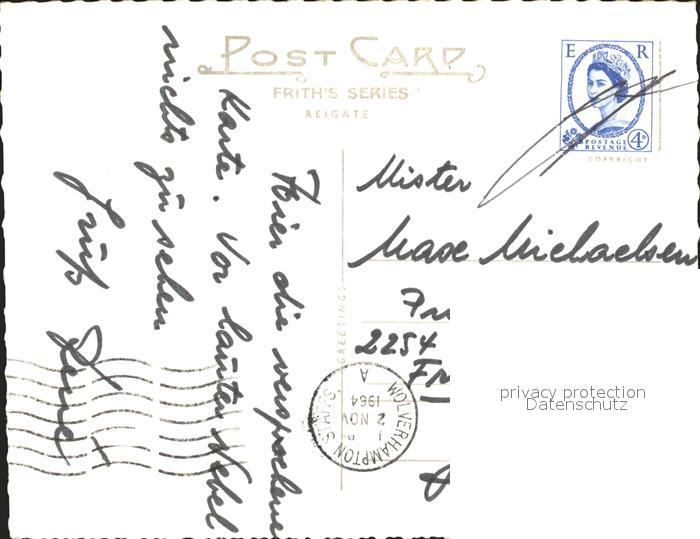 POST CARD
FRITH'S SERIES
REIGATE
E R
POSTAGE
REVENUE
4D
COPYRIGHT
GREETINGS
Hier die versprochene
Karte. Vor lauter Nebel
nichts zu sehen
Gruß
Mister
Max Michaelsen
2254
WOLVERHAMPTON STAFFS.
2 NOV
1964
A
privacy protection
Datenschutz